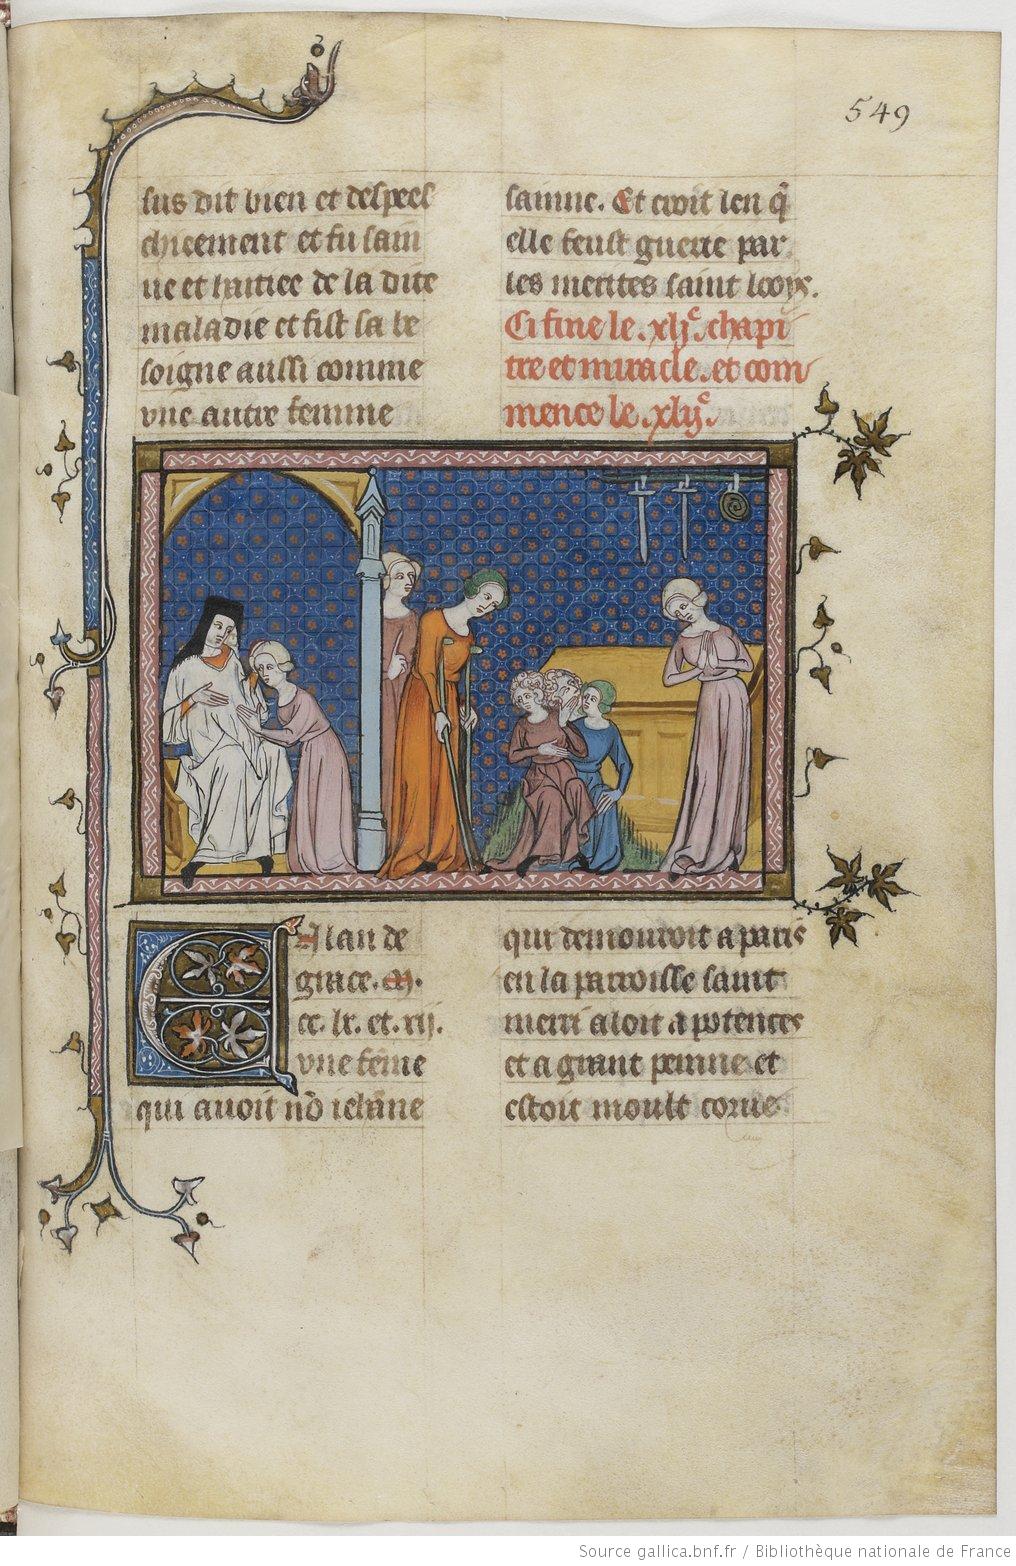 549
sus dit bien et despees
chieement et fu sain
ne et haitiee de la dite
maladie et fist sa be
soigne aussi comme
une autre femme
sainne. Et croit len q̃
elle feust guerie par
les merites saint looys.
Ci fine le .xlj͛e. chapi
tre et miracle. et com
mence le .xlij͛e.
En lan de
grace. m.
cc. lx. et. xij.
une fẽme
qui avoit nõ iehãne
qui demouroit a paris
en la parroisse saint
merri aloit a potences
et a grant peinne et
estoit moult corue
Source gallica.bnf.fr / Bibliothèque nationale de France